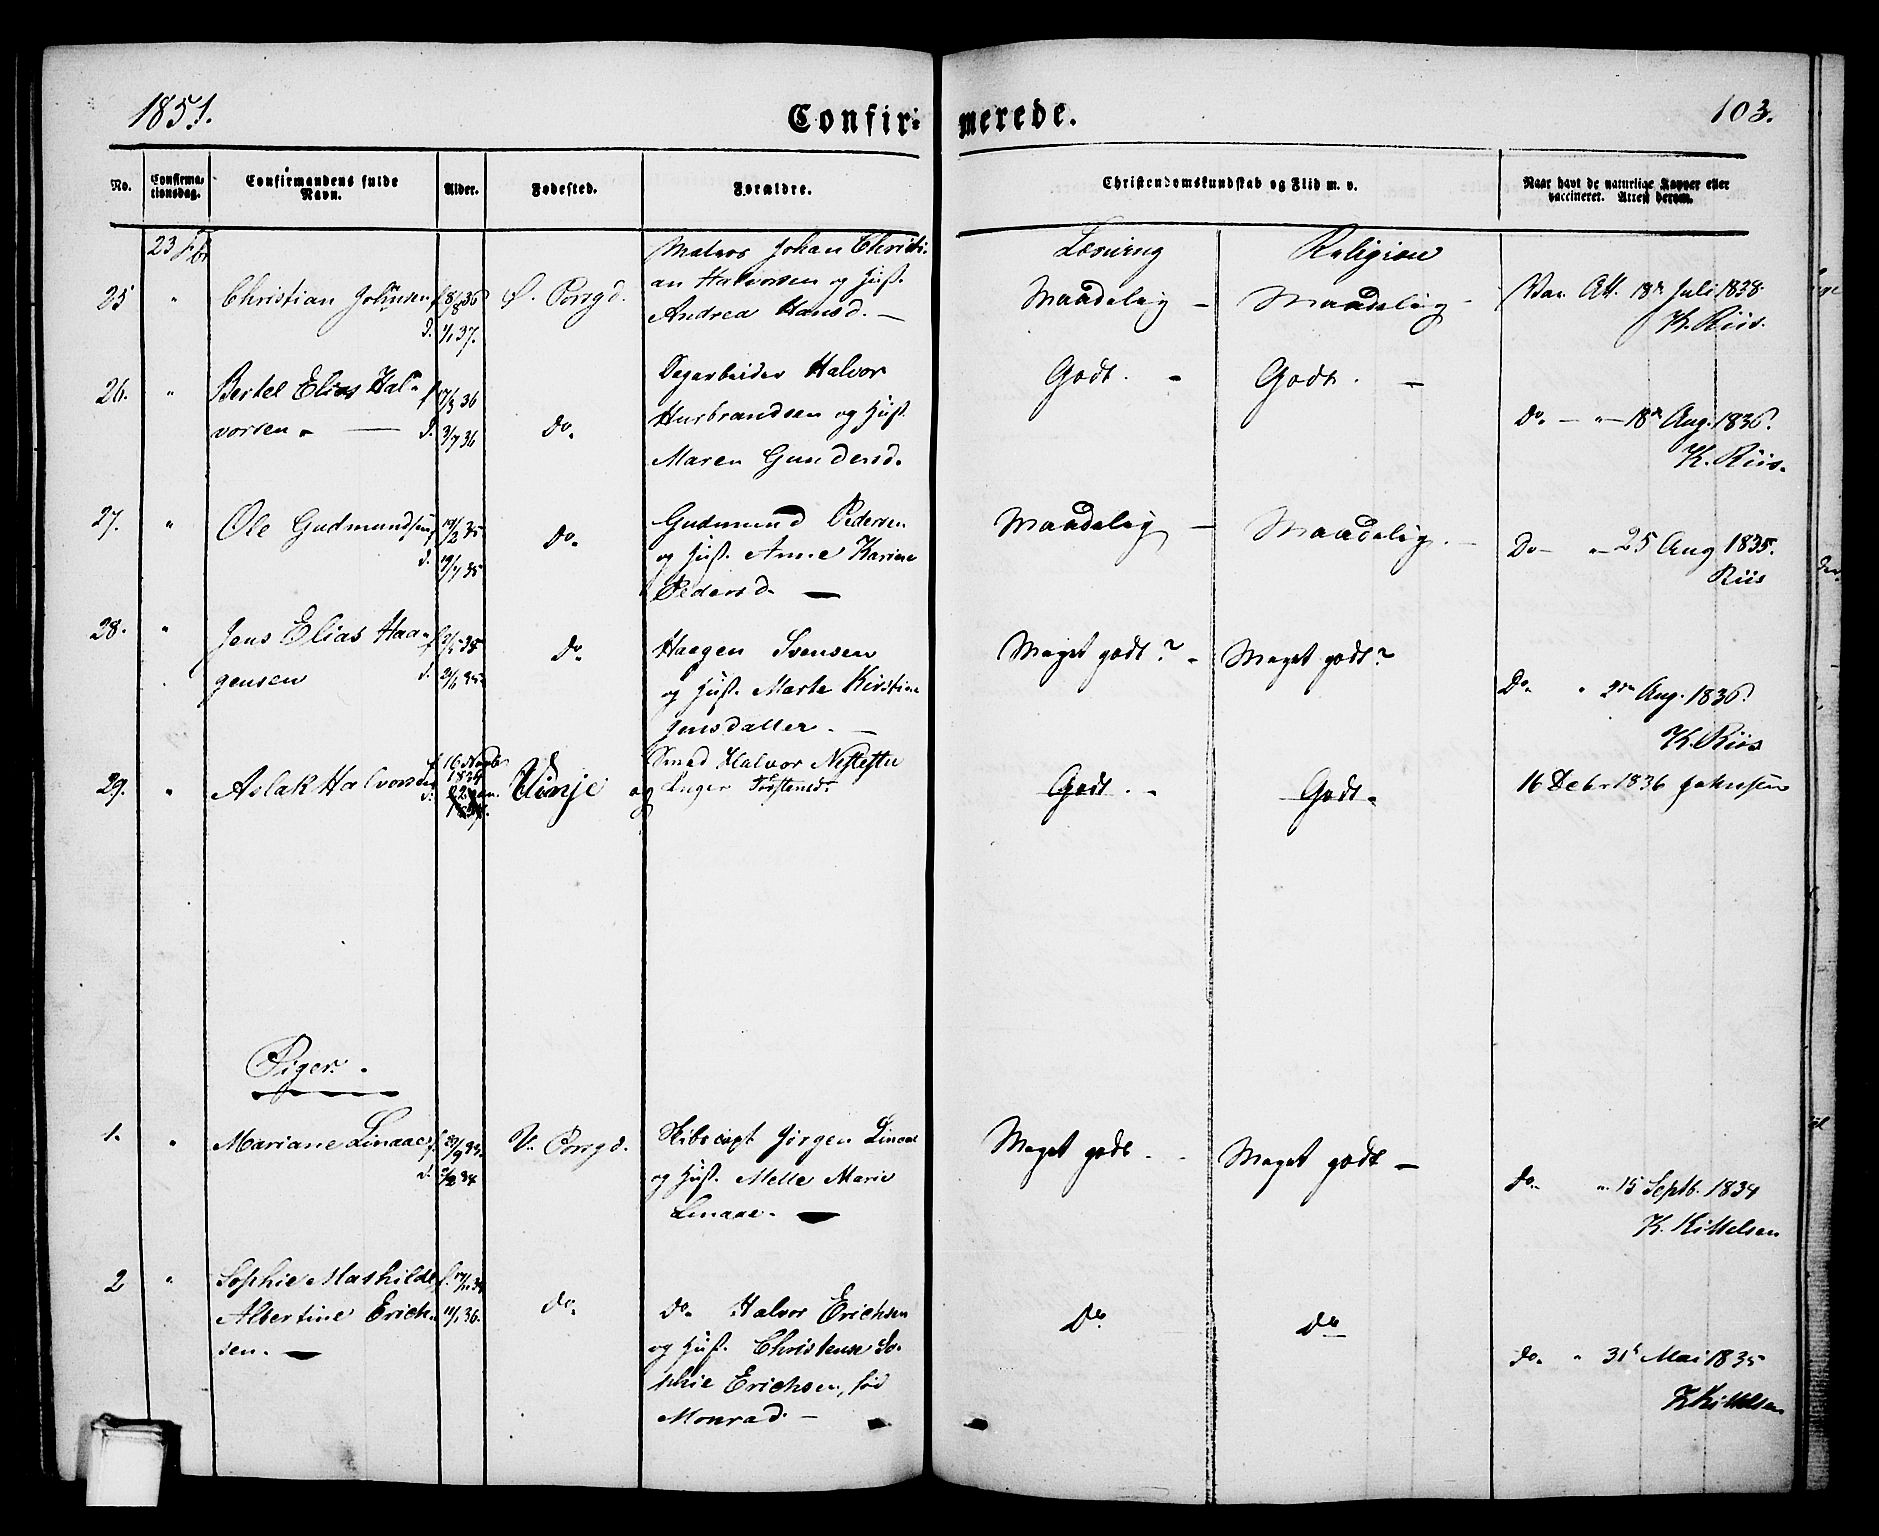 1851.
Confir- merede.
103.
No.
Confirma-
tionsdag.
Confirmandens fulde
Navn.
Alder.
Fødested.
Forældre.
Christendomskundskab og Flid m. v.
Naar havt de naturlige Kopper eller
vaccineret. Attest derom.
23 Fbr
Læsning Religion
25 " Christian Johnsen f. 8/8 36 Ø. Porsgd. Matros Johan Christi-
an Halvorsen og Hust.
Andrea Hansd. —
d. 1/1 37.
Maadelig — Maadelig - Vac. Att. 18de Juli 1838.
K. Riis.
26. " Bertel Elias Hal-
vorsen. — f. 17/3 36
d. 3/7 36
Do. Dagarbeider Halvor
Hurbrandsen og Hust.
Maren Gundersd.
Godt. - Godt. —
Do. — " — 18de Aug. 1836.
K. Riis.
27. " Ole Gudmundsen f. 19/2 35
d. 19/7 35
Do. Gudmund Pedersen
og Hust. Anne Karine
Pedersd. —
Maadelig — Maadelig. —
Do — " 25 Aug 1835.
Riis
28. " Jens Elias Haa-
gensen
Do. Haagen Svensen
og Hust. Marte Kirstine
Jensdatter. —
Meget godt? - Meget godt?
Do. " 2den Aug. 1836.
K. Riis
29. " Aslak Halvorsen f. 16 Novbr
1834
Vinje Smed Halvor
og Inger Tostensdr
Godt. - Godt.
16 Debr 1836 Johnsen
Piger.
1. " Mariane Linaae f.
d. V. Porsgd. Skibscapt Jørgen Linaae
og Hust. Melle Marie
Linaae. —
Meget godt. - Meget godt —
do. " 15 Septb. 1834
K. Kittelsen
2 " Sophie Mathilde
Albertine Erich-
sen. — 11/1 36.
do. do. Halvor Erichsen
og Hust. Christense So-
phie Erichsen, fød
Monrad. —
Do Do
do. " 31te Mai 1835
K Kittelsen